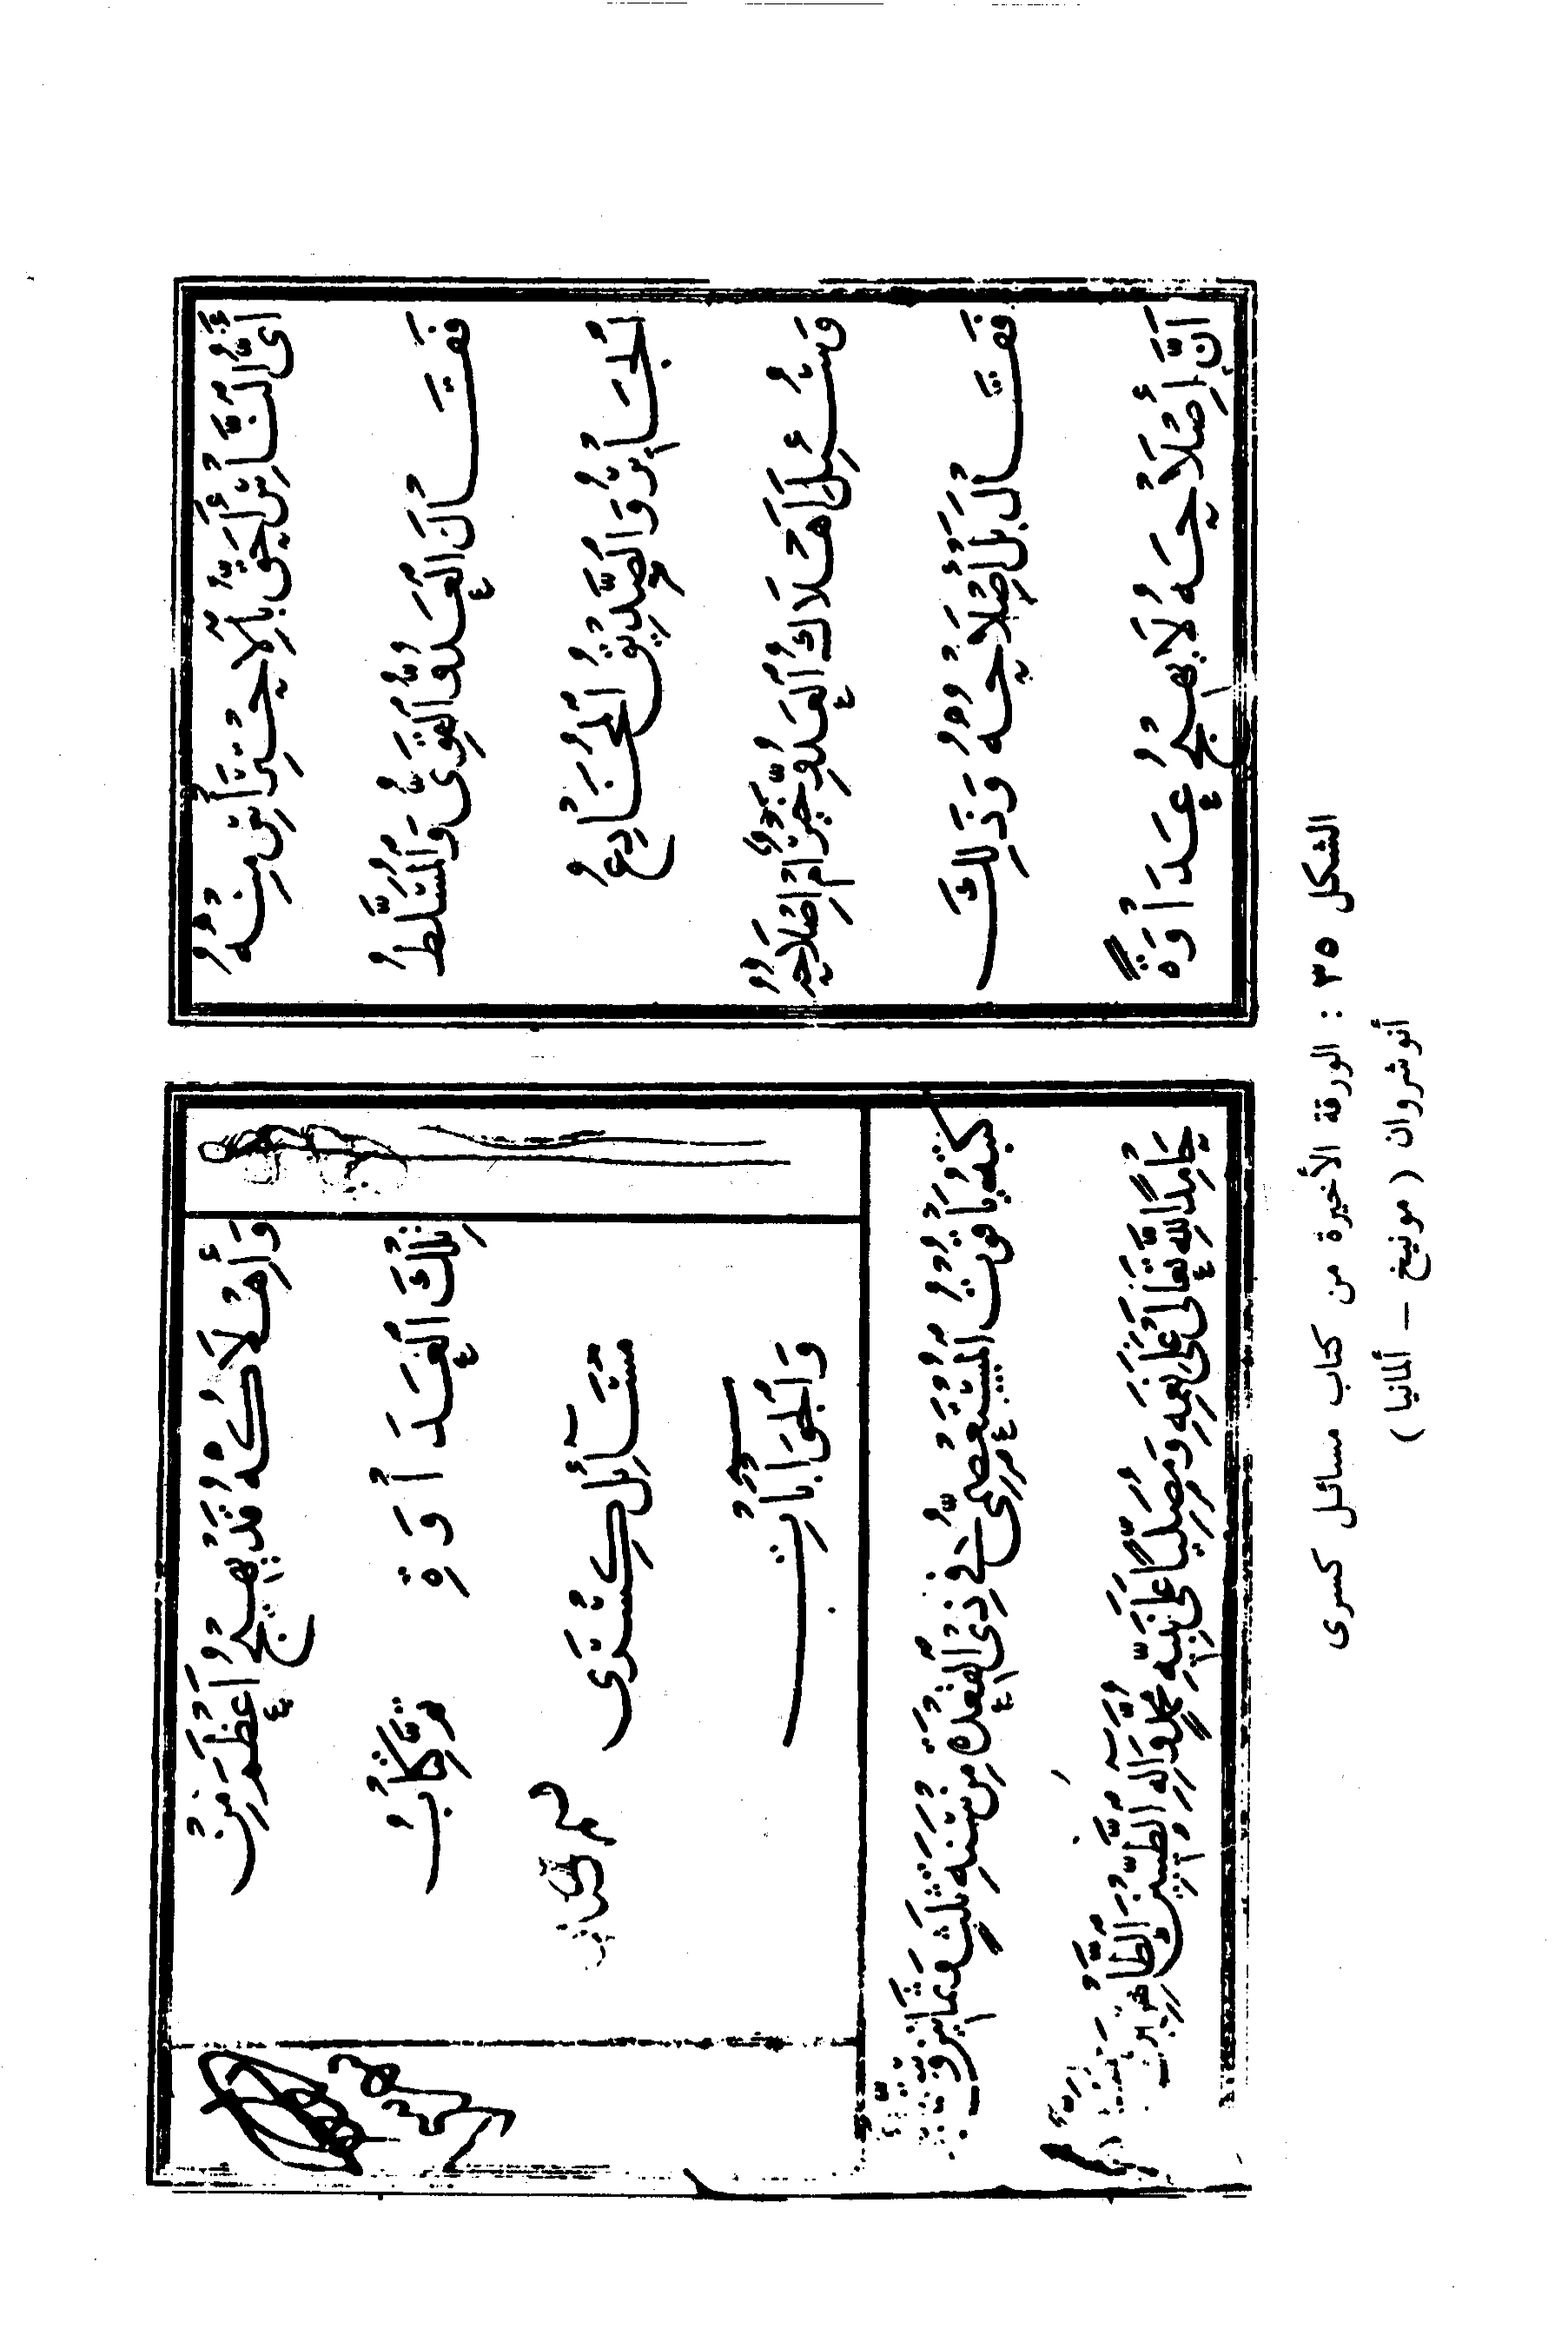 أَيُّ النَّاسِ أَحَقُّ بِالْاِحْتِرَاسِ مِنْهُ
فَقَالَ الْعَدُوُّ الْقَوِيُّ وَالْمُسَلَّطُ
الْجَائِرُ وَالصَّدِيقُ الْمُخَادِعُ
وَسُئِلَ أَهَلَاكُ الْعَدُوِّ خَيْرٌ أَمْ إِصْلَاحُهُ
فَقَالَ بَلْ إِصْلَاحُهُ وَذٰلِكَ
أَنَّ إِصْلَاحَهُ لَا يُهَيِّجُ عَدَاوَةً
وَأَهْلَاكُهُ قَدْ يُهَيِّجُ أَعْظَمَ مِنْ
تِلْكَ الْعَدَاوَةِ تَمَّ كِتَابُ
مَسَائِلِ كِسْرَى
وَالْجَوَابَاتِ
كتبه ياقوت المستعصمي في ذي القعدة من سنة ثلث وثمانين وستمائة
حامدًا لله تعالى على نعمه ومصليًا على نبيه محمد وآله الطيبين الطاهرين
الشكل ٣٥ : الورقة الأخيرة من كتاب مسائل كسرى
أنوشروان ( مونيخ – ألمانيا )